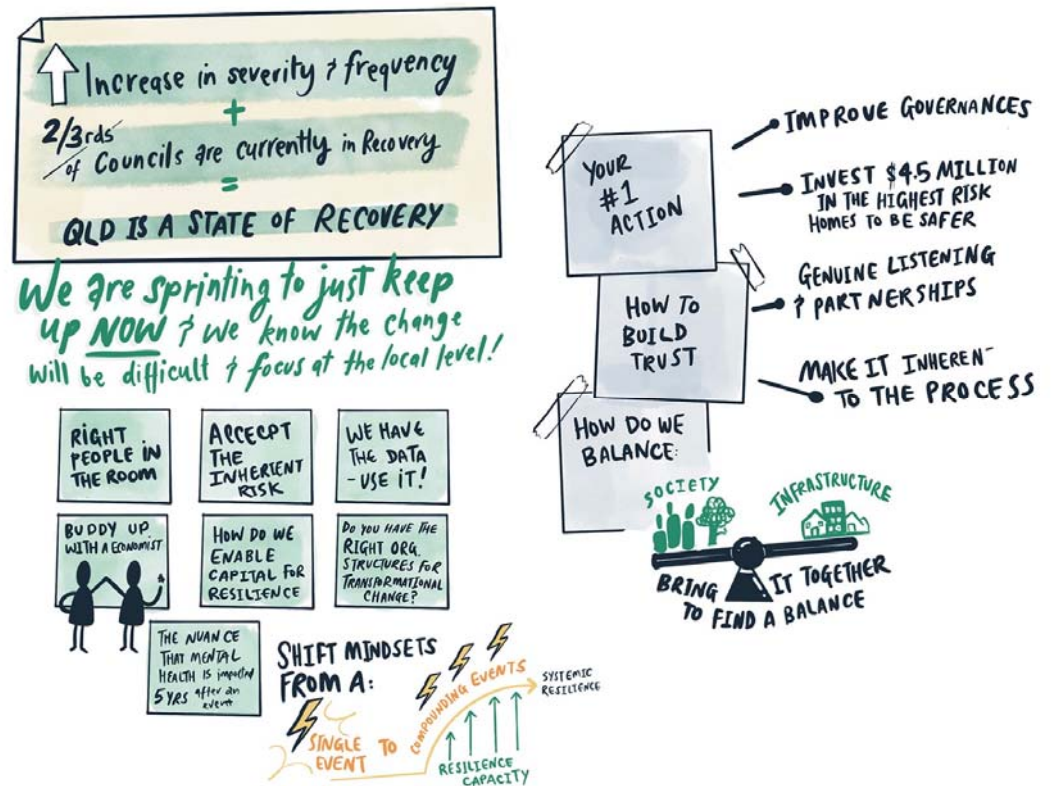 Increase in severity & frequency
+
2/3rds
of Councils are currently in Recovery
=
QLD IS A STATE OF RECOVERY
We are sprinting to just keep
up NOW & we know the change
will be difficult & focus at the local level!
RIGHT
PEOPLE IN
THE ROOM
ACCECPT
THE
INHERIENT
RISK
WE HAVE
THE DATA
- USE IT!
BUDDY UP
WITH A ECONOMIST
HOW DO WE
ENABLE
CAPITAL FOR
RESILIENCE
DO YOU HAVE THE
RIGHT ORG.
STRUCTURES FOR
TRANSFORMATIONAL
CHANGE?
THE NUANCE
THAT MENTAL
HEALTH IS impacted
5 YRS after an
event
SHIFT MINDSETS
FROM A:
SINGLE
EVENT
TO
COMPOUNDING EVENTS
SYSTEMIC
RESILIENCE
RESILIENCE
CAPACITY
YOUR
#1
ACTION
IMPROVE GOVERNANCES
INVEST $4.5 MILLION
IN THE HIGHEST RISK
HOMES TO BE SAFER
HOW TO
BUILD
TRUST
GENUINE LISTENING
& PARTNERSHIPS
MAKE IT INHEREN
TO THE PROCESS
HOW DO WE
BALANCE:
SOCIETY
INFRASTRUCTURE
BRING IT TOGETHER
TO FIND A BALANCE